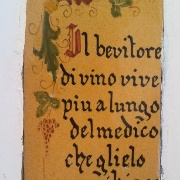 Il bevitore
di vino vive
piu a lungo
del medico
che glielo